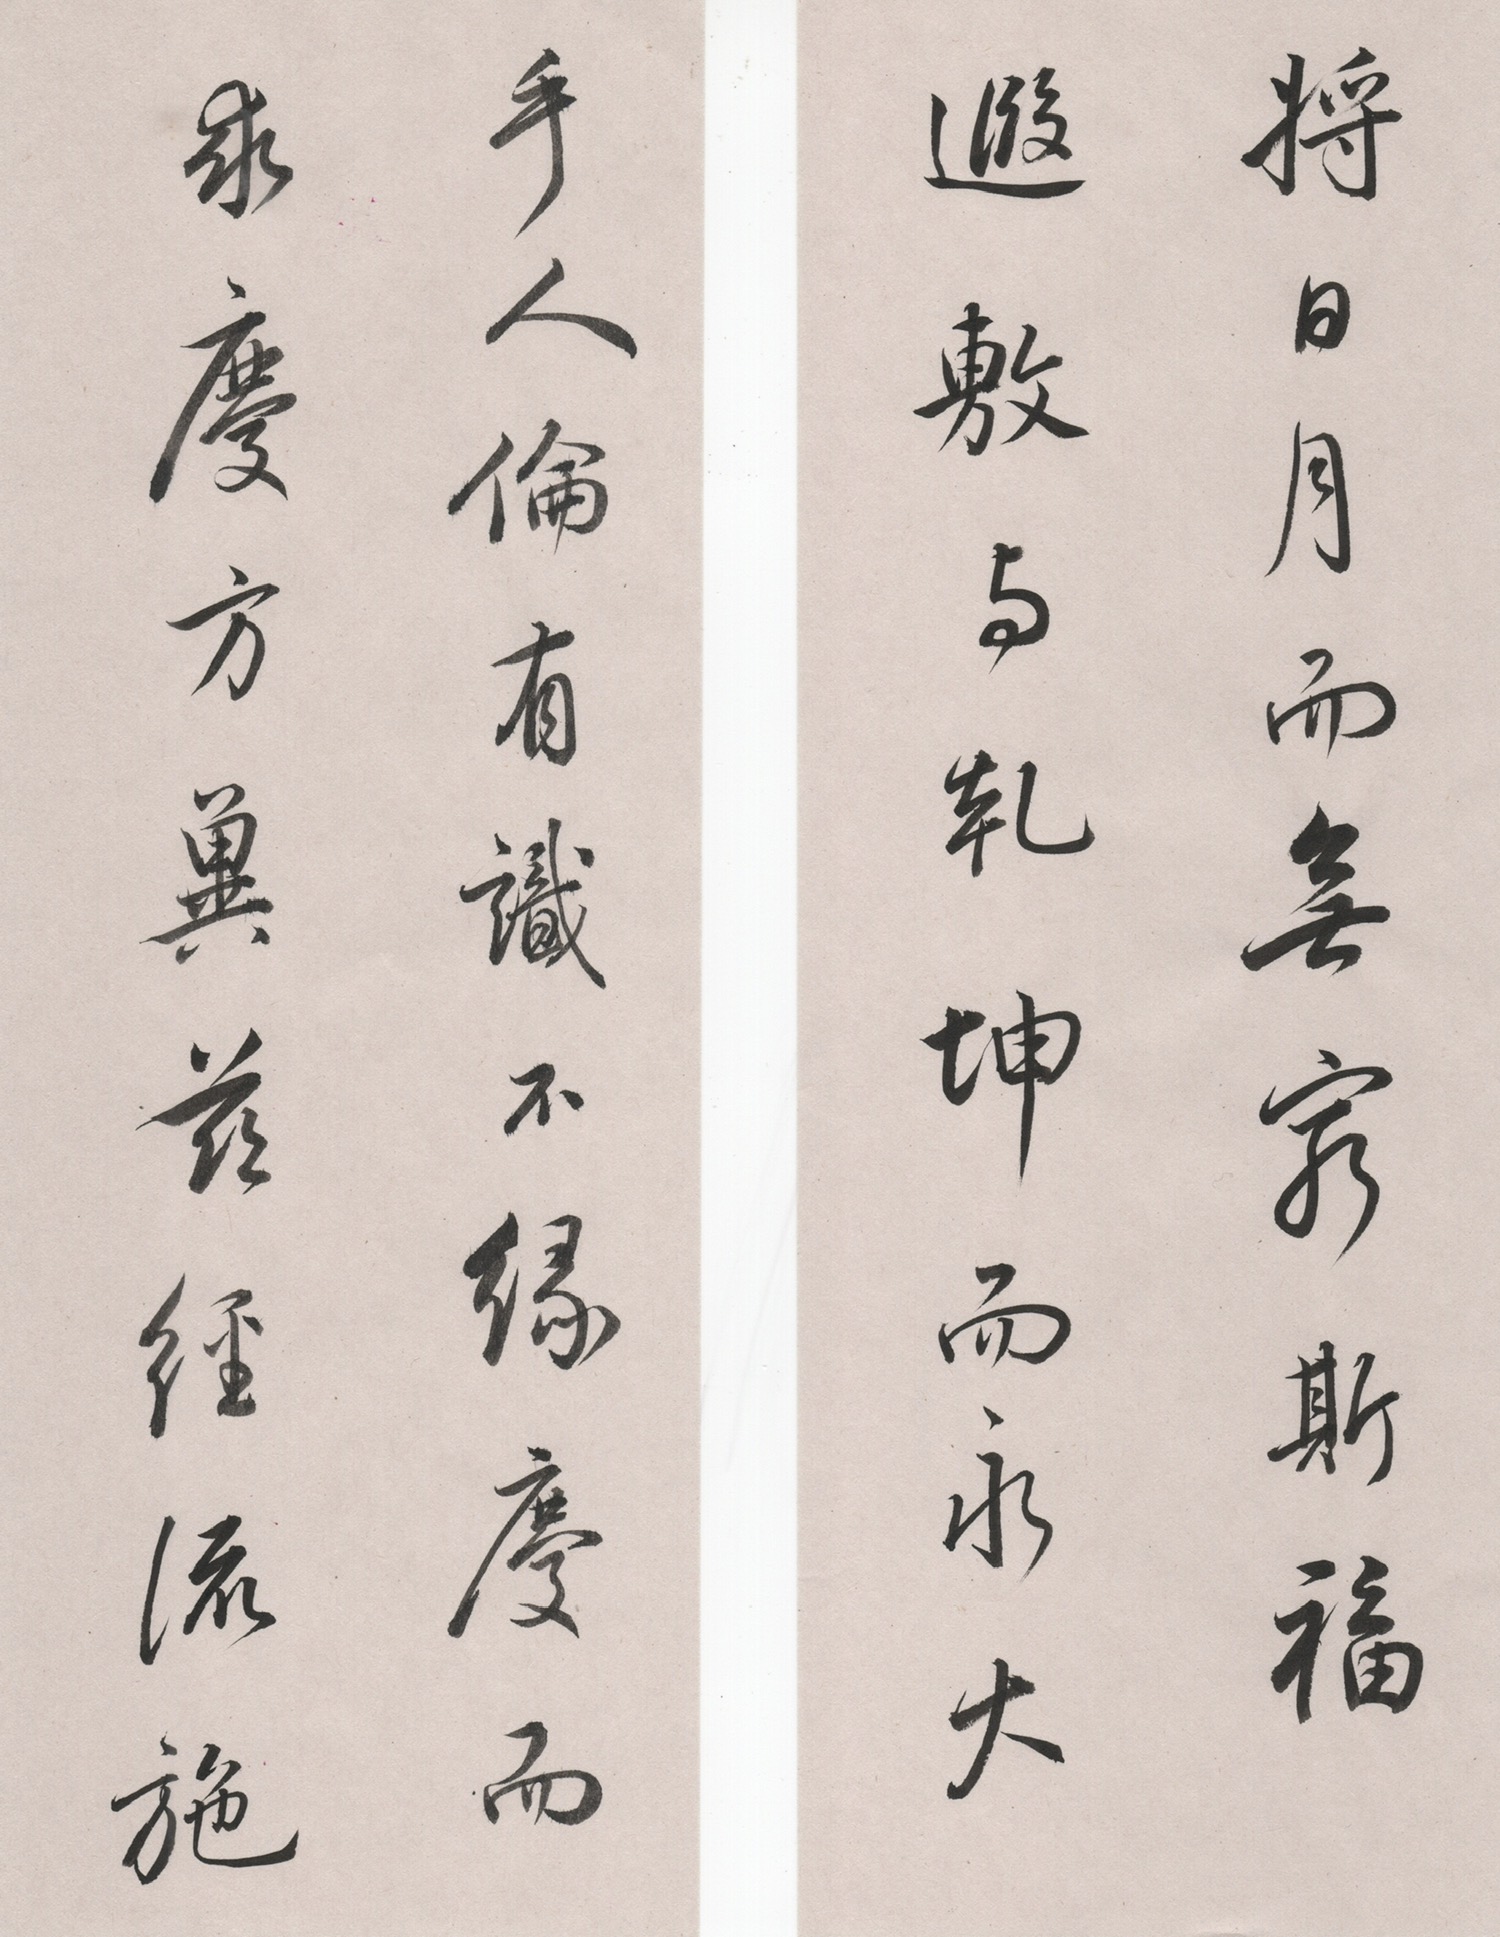 將日月而無窮斯福
遐敷与乹坤而永大
乎人倫有識不緣慶而
求慶方冀茲經流施